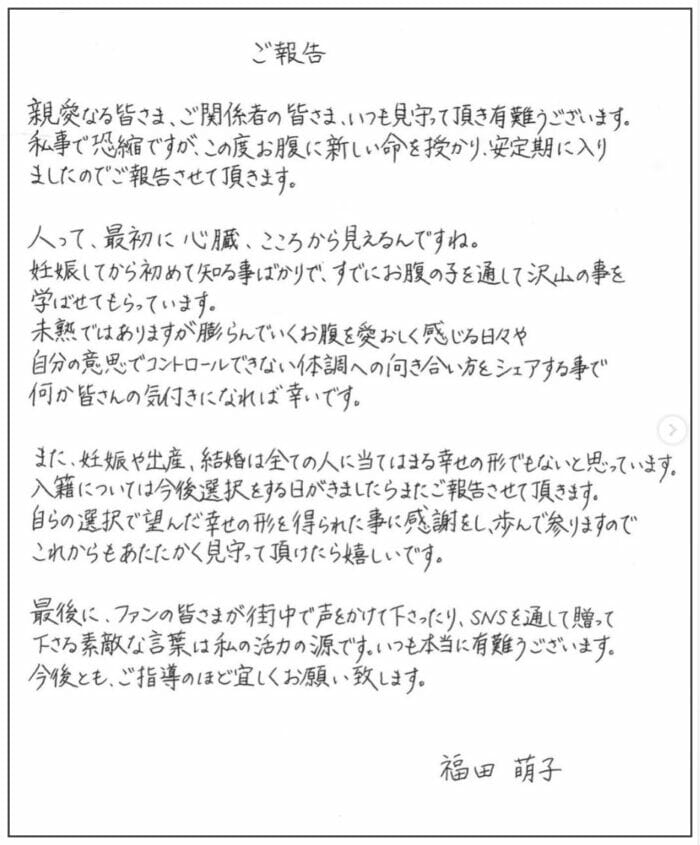 ご報告
親愛なる皆さま、ご関係者の皆さま、いつも見守って頂き有難うございます。
私事で恐縮ですが、この度お腹に新しい命を授かり、安定期に入り
ましたのでご報告させて頂きます。
人って、最初に心臓、こころから見えるんですね。
妊娠してから初めて知る事ばかりで、すでにお腹の子を通して沢山の事を
学ばせてもらっています。
未熟ではありますが膨らんでいくお腹を愛おしく感じる日々や
自分の意思でコントロールできない体調への向き合い方をシェアする事で
何か皆さんの気付きになれば幸いです。
また、妊娠や出産、結婚は全ての人に当てはまる幸せの形でもないと思っています。
入籍については今後選択をする日がきましたらまたご報告させて頂きます。
自らの選択で望んだ幸せの形を得られた事に感謝をし、歩んで参りますので
これからもあたたかく見守って頂けたら嬉しいです。
最後に、ファンの皆さまが街中で声をかけて下さったり、SNSを通して贈って
下さる素敵な言葉は私の活力の源です。いつも本当に有難うございます。
今後とも、ご指導のほど宜しくお願い致します。
福田 萌子